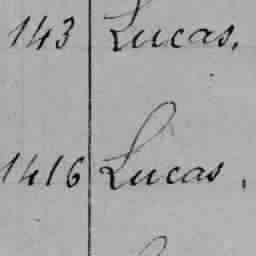 143 Lucas.
1416 Lucas.